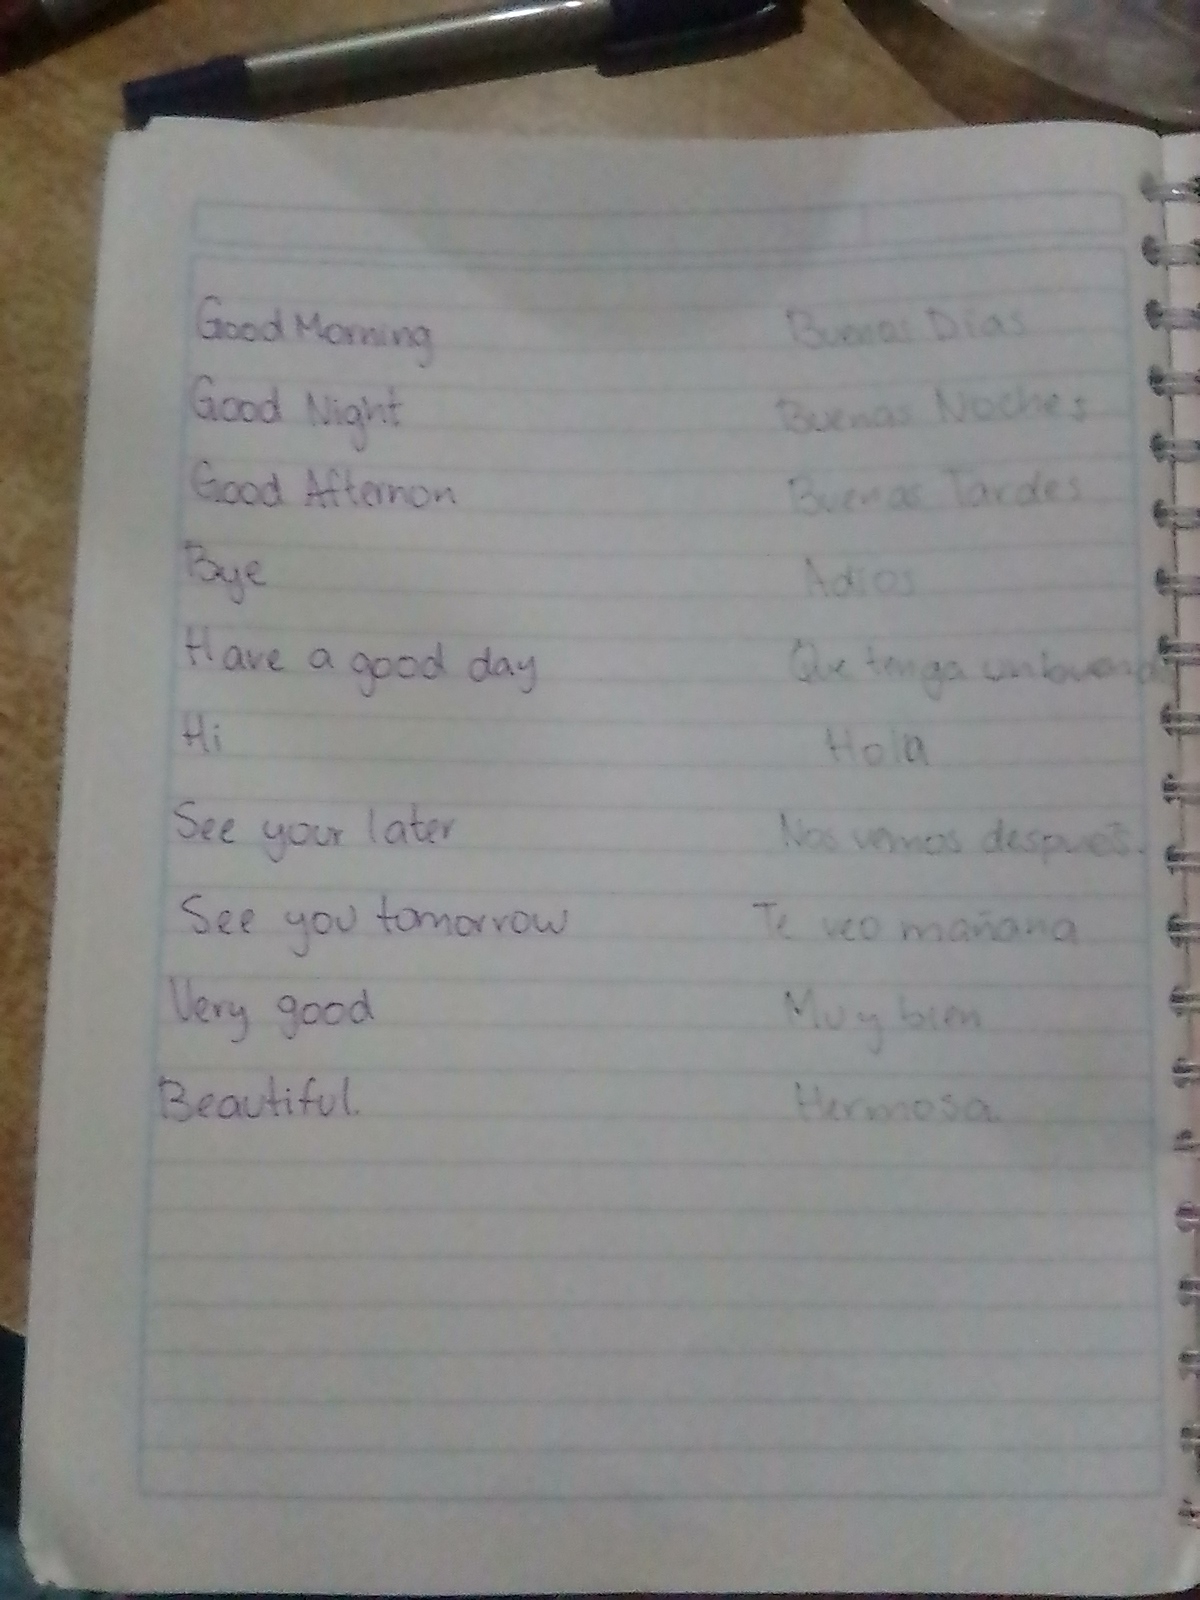 Good Morning Buenas Días
Good Night Buenas Noches
Good Afternon Buenas Tardes
Bye Adios
Have a good day Que tenga un buen
Hi Hola
See your later Nos vemos después.
See you tomorrow Te veo mañana
Very good Muy bien
Beautiful. Hermosa